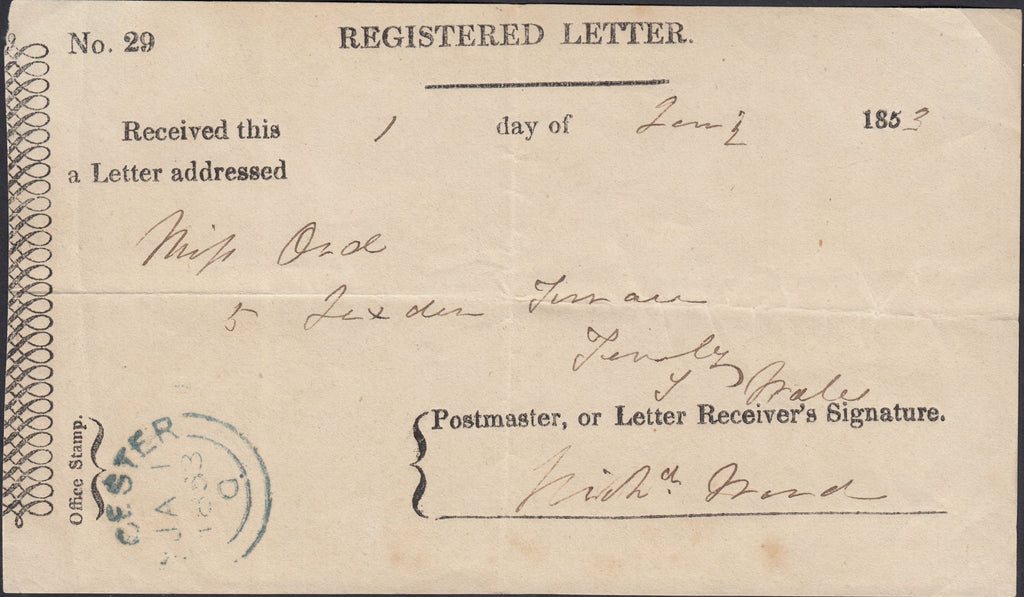 No. 29
REGISTERED LETTER.
Received this 1 day of Jany 1853
a Letter addressed
Miss Ord
5 Lexden Terrace
Tenby
S Wales
Office Stamp.
CESTER
JA 1
1853
C
Postmaster, or Letter Receiver's Signature.
Richd Ward